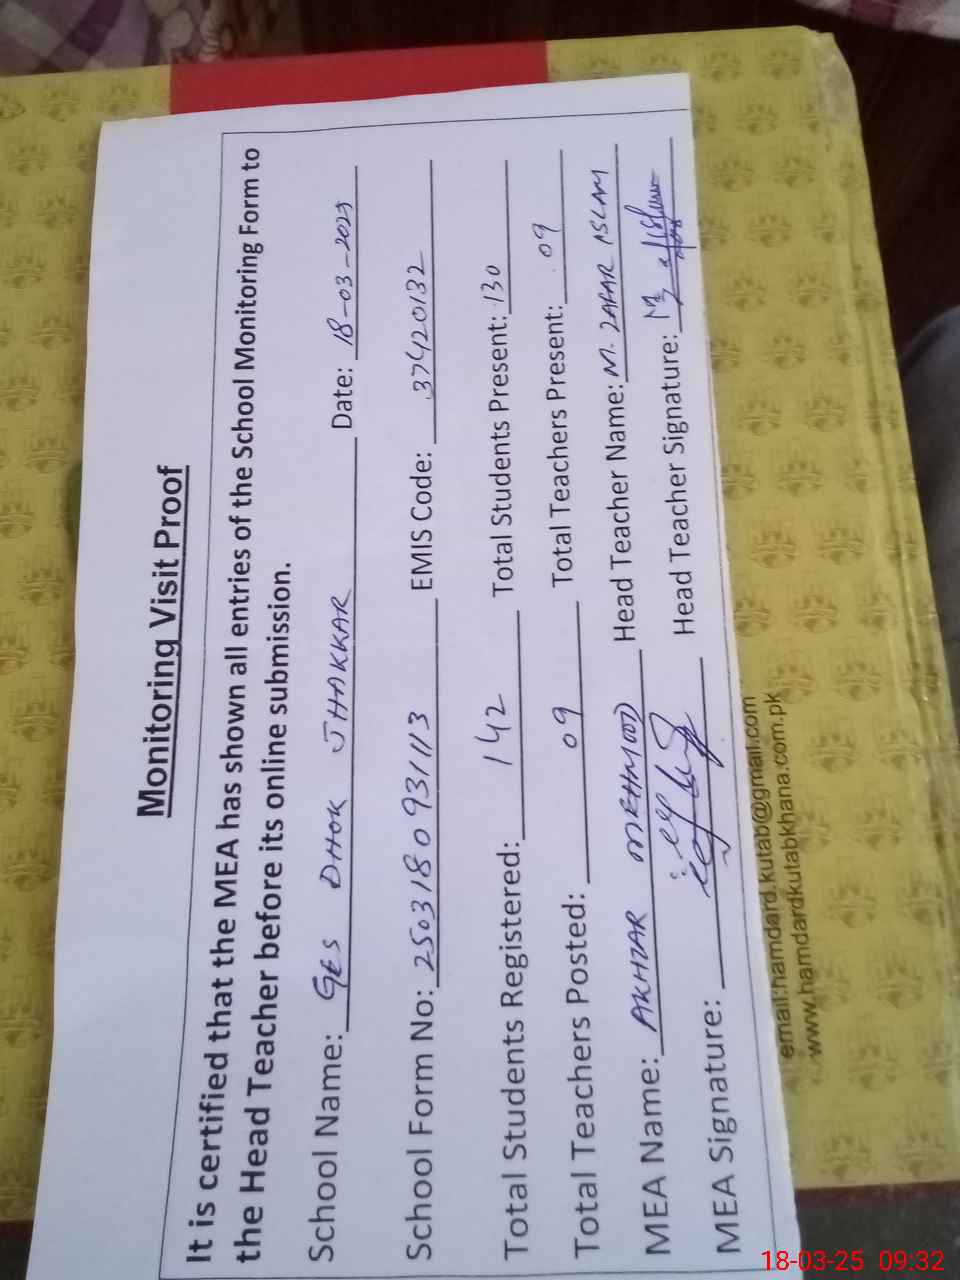 Monitoring Visit Proof
It is certified that the MEA has shown all entries of the School Monitoring Form to
the Head Teacher before its online submission.
School Name: GES DHOK JHAKKAR Date: 18-03-2025
School Form No: 2503180931113 EMIS Code: 37420132
Total Students Registered: 142 Total Students Present: 130
Total Teachers Posted: 09 Total Teachers Present: 09
MEA Name: AKHZAR MEHMOOD Head Teacher Name: M. ZAFAR ASLAM
MEA Signature: Head Teacher Signature:
email:hamdard.kutab@gmail.com
www.hamdardkutabkhana.com.pk
18-03-25 09:32